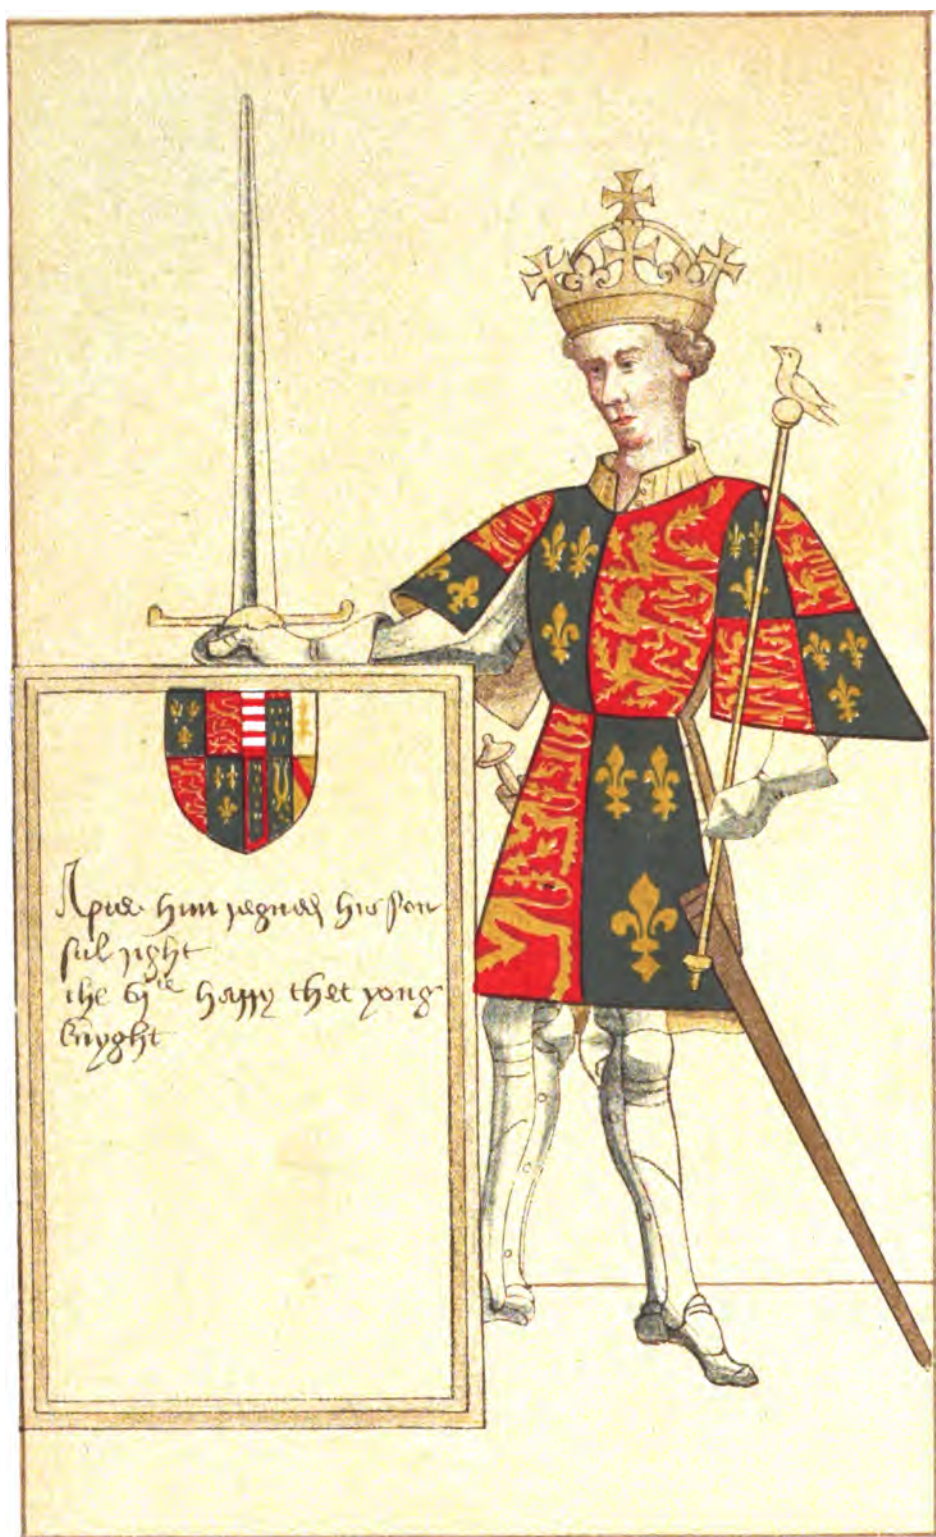 him regned his son
ful right
the vjte happy thet yong
knyght